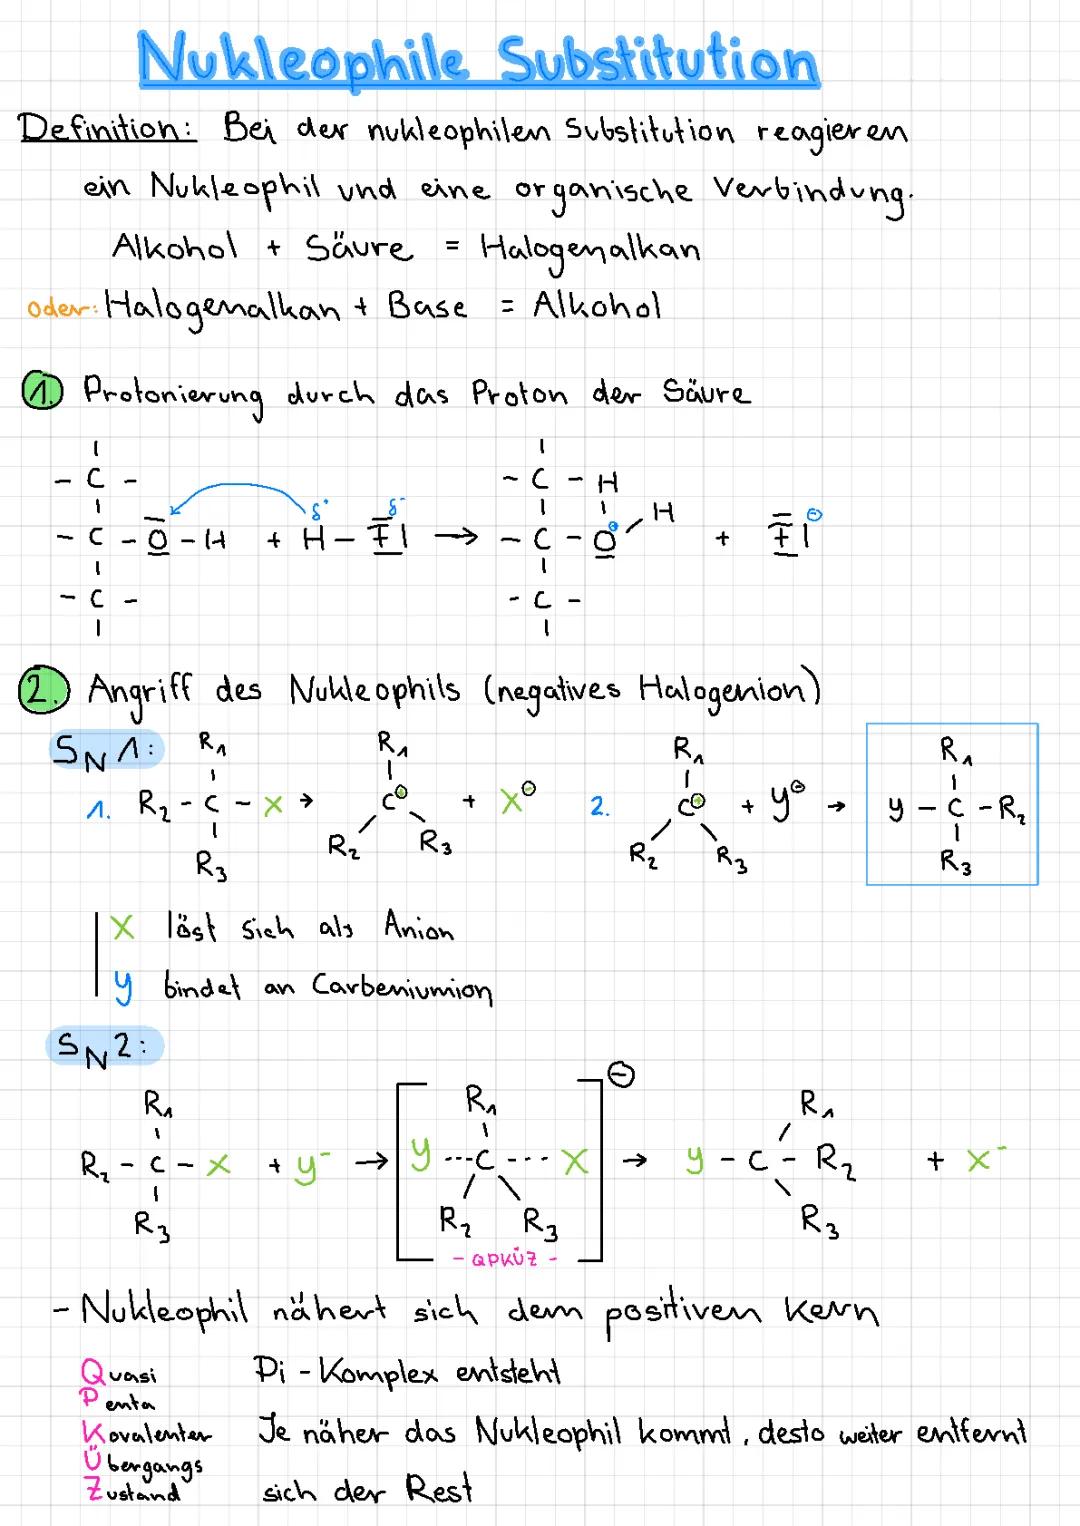 Nukleophile Substitution
Definition: Bei der nukleophilen Substitution reagieren
ein Nukleophil und eine organische Verbindung.
Alkohol + Säure = Halogenalkan
oder: Halogenalkan + Base = Alkohol
1. Protonierung durch das Proton der Säure
- C - - C - H
- C - O - H + H - F → - C - O H + F ⊖
- C - - C -
2. Angriff des Nukleophils (negatives Halogenion)
SN1:
R1 R1 R1 R1
1. R2 - C - X → C⊕ + X⊖ 2. C⊕ + y⊖ → y - C - R2
R3 R2 R3 R2 R3 R3
X löst sich als Anion
y bindet an Carbeniumion
SN2:
R1 R1 ⊖ R1
R2 - C - X + y⁻ → y ---C--- X → y - C - R2 + X⁻
R3 R2 R3 R3
- QPKÜZ -
- Nukleophil nähert sich dem positiven Kern
Quasi Pi - Komplex entsteht
Penta
Kovalenter Je näher das Nukleophil kommt, desto weiter entfernt
Übergangs
Zustand sich der Rest